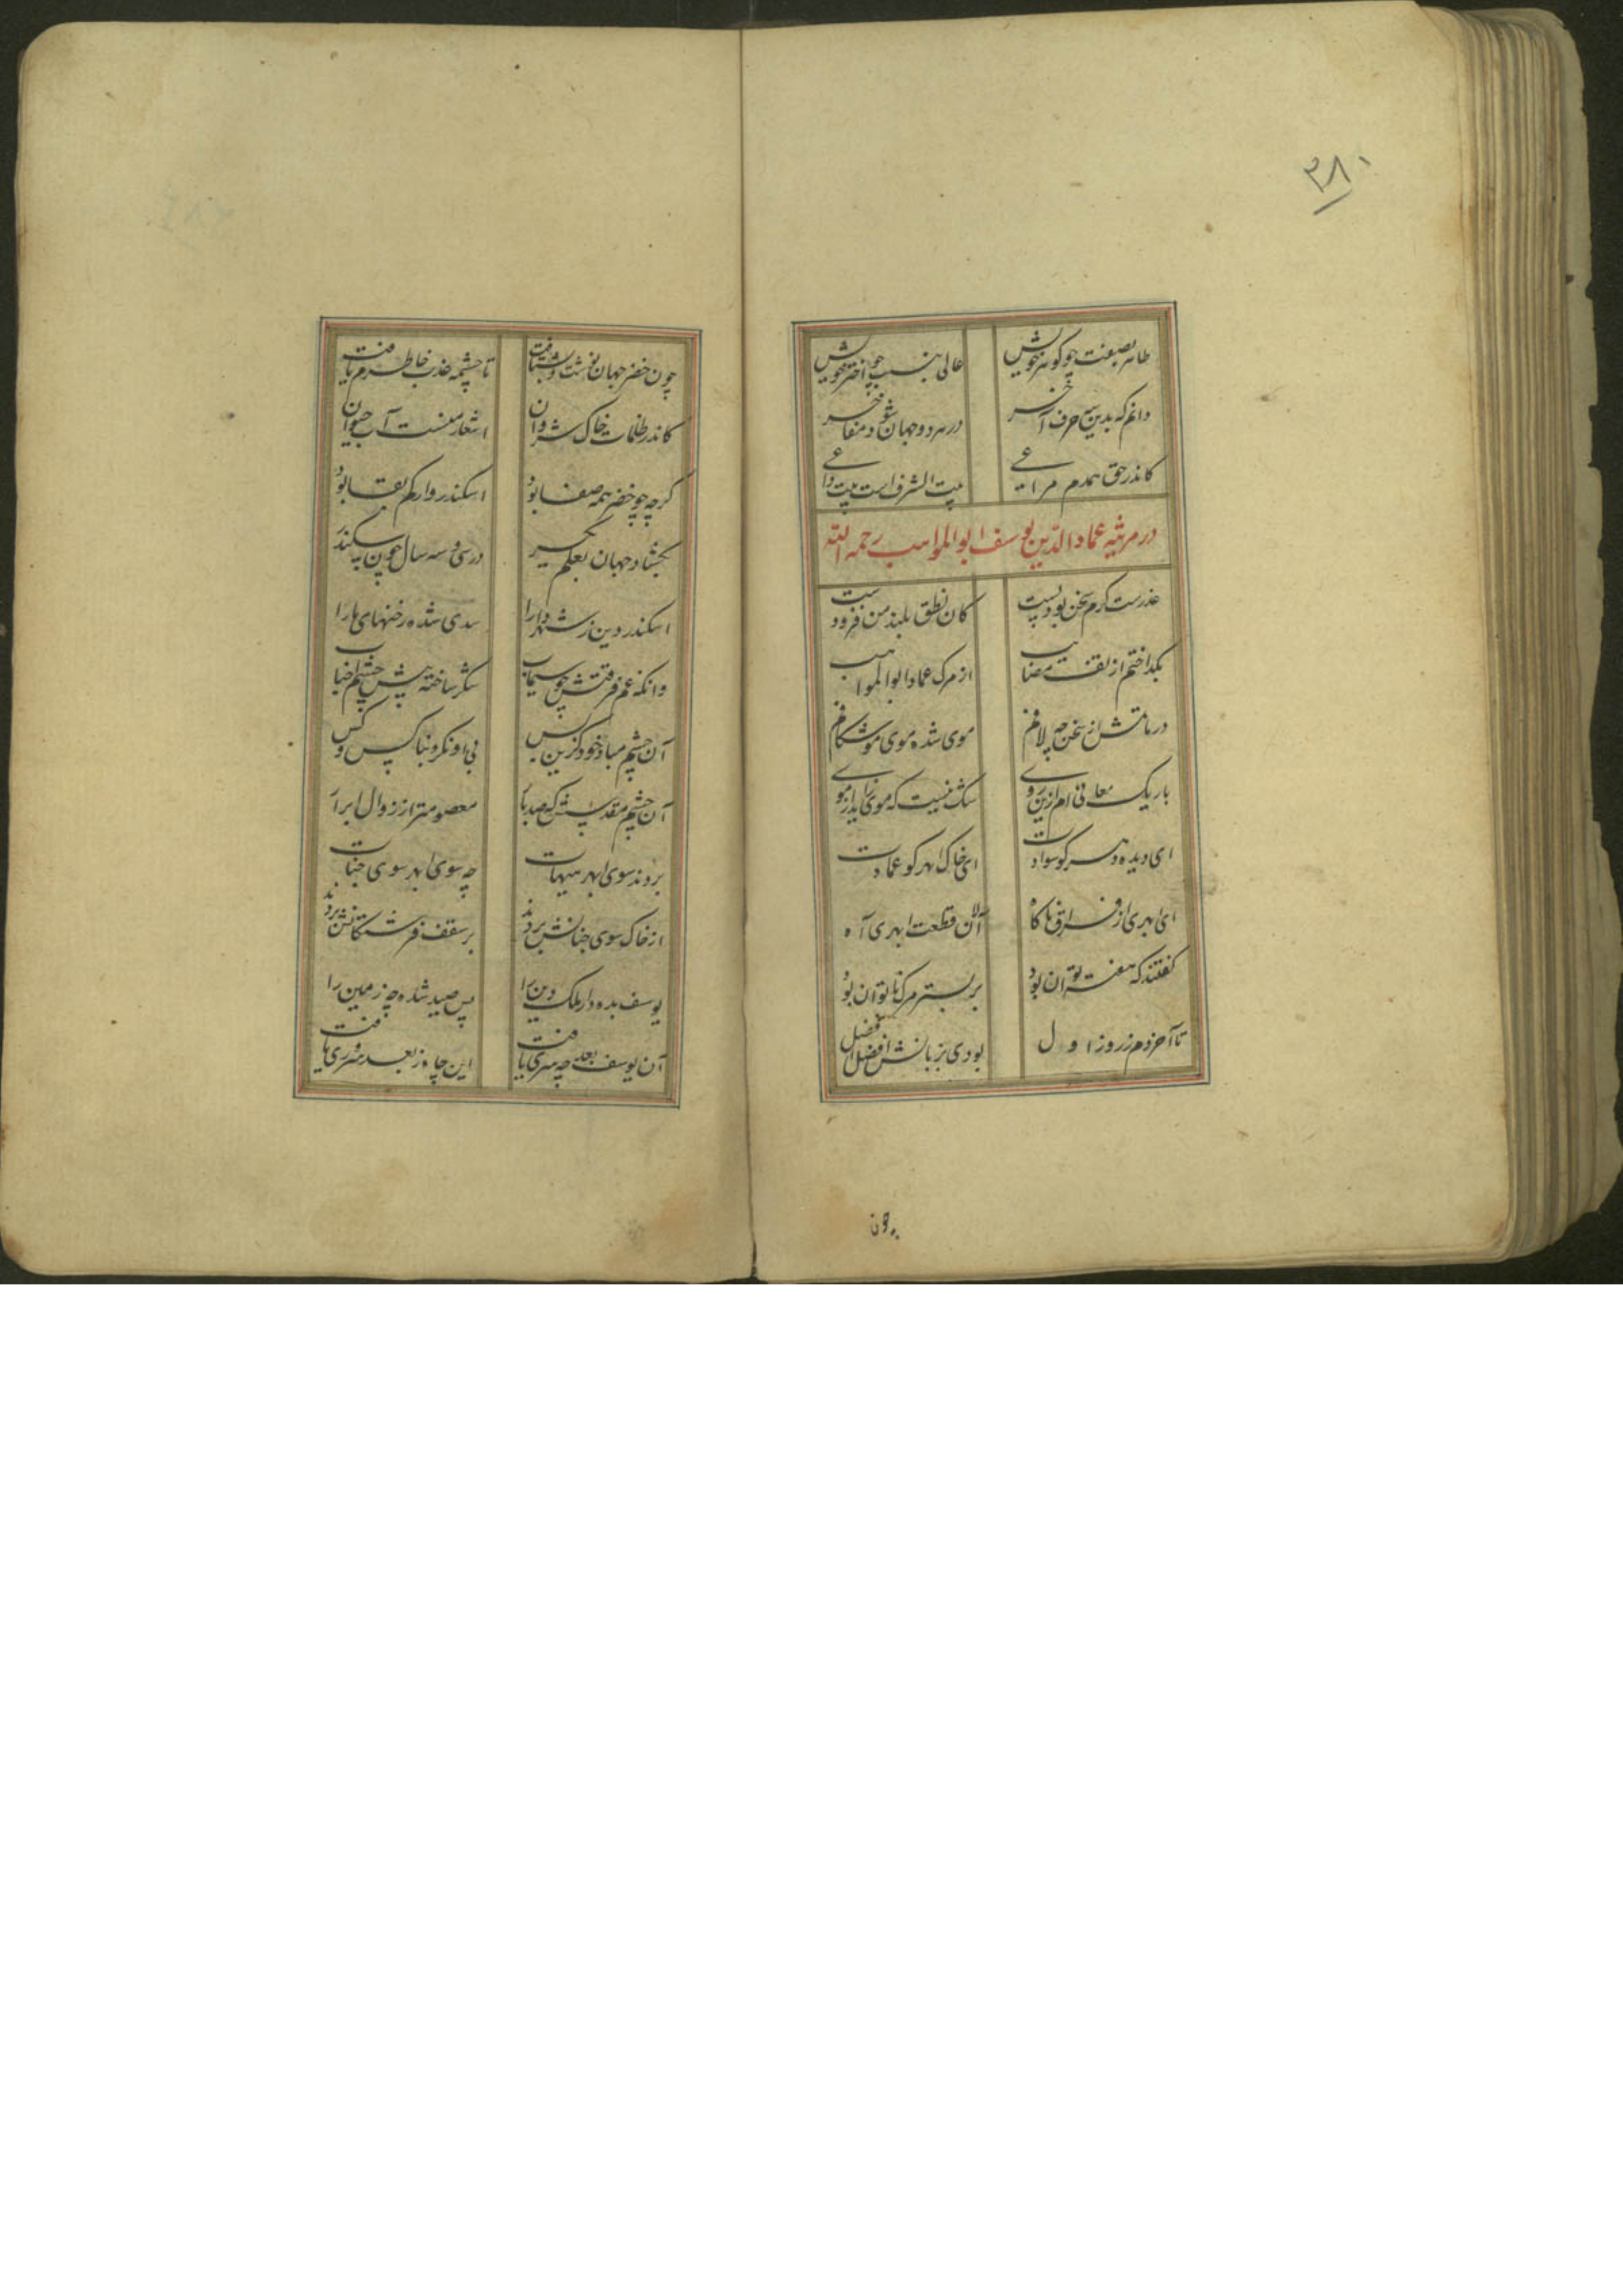 ۳۸۰
طاهر بصفت چو گوهر خویش عالی بنسب چو اختر خویش
دانم که بدین سه حرف آخر در هر دو جهان شود مفاخر
کاندر حق همدم مراعی بیت الشرف است بیت داعی
در مرثیه عماد الدین یوسف ابوالمواهب رحمه الله
عذرست گرم سخن بود پست کان نطق بلند من فرو بست
بگداختم از تف مصائب از مرک عماد ابوالمواهب
در ماتمش از سخن چه لافم موی شده موی موشکافم
باریک معانی ام ازین روی شک نیست که موی زاید از موی
ای دیده دهر کو سوادت ای خاک ابهر کو عمادت
ای ابهری از فراق ناکاه آلان قطعت ابهری آه
گفتند که هفته توان بود بر بستر مرک ناتوان بود
تا آخر دم ز روز اول بودی بزبانش افضل افضل
چون
چون خضر جهان بنشت و بشتافت تا چشمه عذب خاطرم یافت
کاندر ظلمات خاک شروان اشعار منست آب حیوان
گرچه چو خضر همه صفا بود اسکندروار کم بقا بود
بگشاد جهان بعلم یکسر در سی و سه سال چون سکندر
اسکندر دین ز شهر دارا سدی شده رخنهای ما را
وانکه غم فرقتش چو سیماب سکر ساخته پیش چشم احباب
آن چشم مباد خود کزین پس بی او نکرد بناکس و کس
آن چشم مقدسش که صد بار معصوم تر از زوال ابرار
بردند سوی ابهر هیهات چه سوی ابهر سوی جنات
از خاک سوی جنانش بردند بر سقف فرشتگانش بردند
یوسف بده دار ملک دین را پس صید شده چه زمین را
آن یوسف بعد چه سری یافت این چاه ز بعد سروری یافت